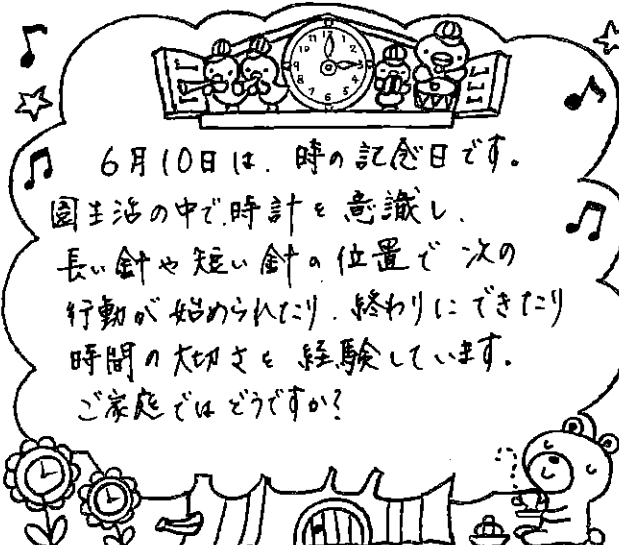 6月10日は、時の記念日です。
園生活の中で、時計を意識し、
長い針や短い針の位置で次の
行動が始められたり、終わりにできたり
時間の大切さを経験しています。
ご家庭ではどうですか?